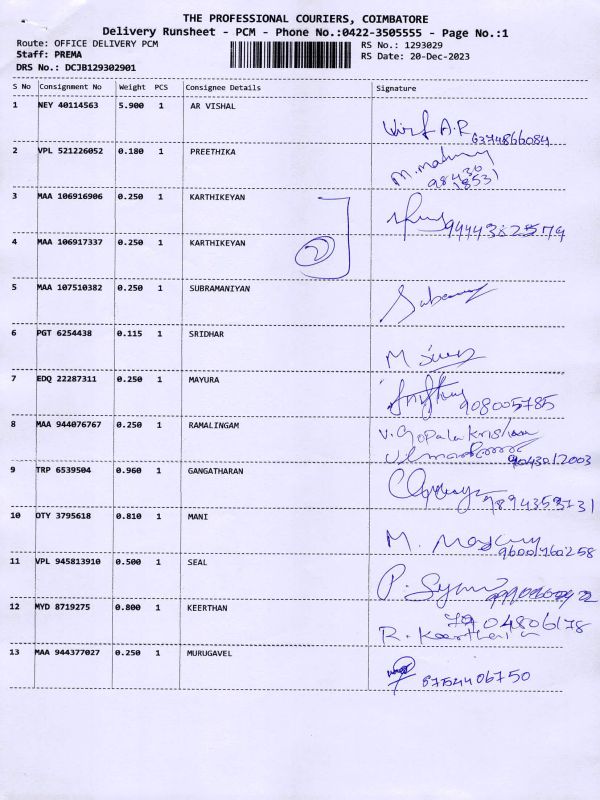 THE PROFESSIONAL COURIERS, COIMBATORE
Delivery Runsheet - PCM - Phone No.:0422-3505555 - Page No.:1
Route: OFFICE DELIVERY PCM RS No.: 1293029
Staff: PREMA RS Date: 20-Dec-2023
DRS No.: DCJB129302901
S No Consignment No Weight PCS Consignee Details Signature
1 NEY 40114563 5.900 1 AR VISHAL
A.R 6374866084
2 VPL 521226052 0.180 1 PREETHIKA
98430
18531
3 MAA 106916906 0.250 1 KARTHIKEYAN
9444382579
4 MAA 106917337 0.250 1 KARTHIKEYAN
2
5 MAA 107510382 0.250 1 SUBRAMANIYAN
6 PGT 6254438 0.115 1 SRIDHAR
M
7 EDQ 22287311 0.250 1 MAYURA
908005785
8 MAA 944076767 0.250 1 RAMALINGAM
V. Gopala Krishnan
9043012003
9 TRP 6539504 0.960 1 GANGATHARAN
9894353731
10 OTY 3795618 0.810 1 MANI
M.
9600760258
11 VPL 945813910 0.500 1 SEAL
P.
12 MYD 8719275 0.800 1 KEERTHAN
7904806178
R. Keerthan
13 MAA 944377027 0.250 1 MURUGAVEL
8754406750